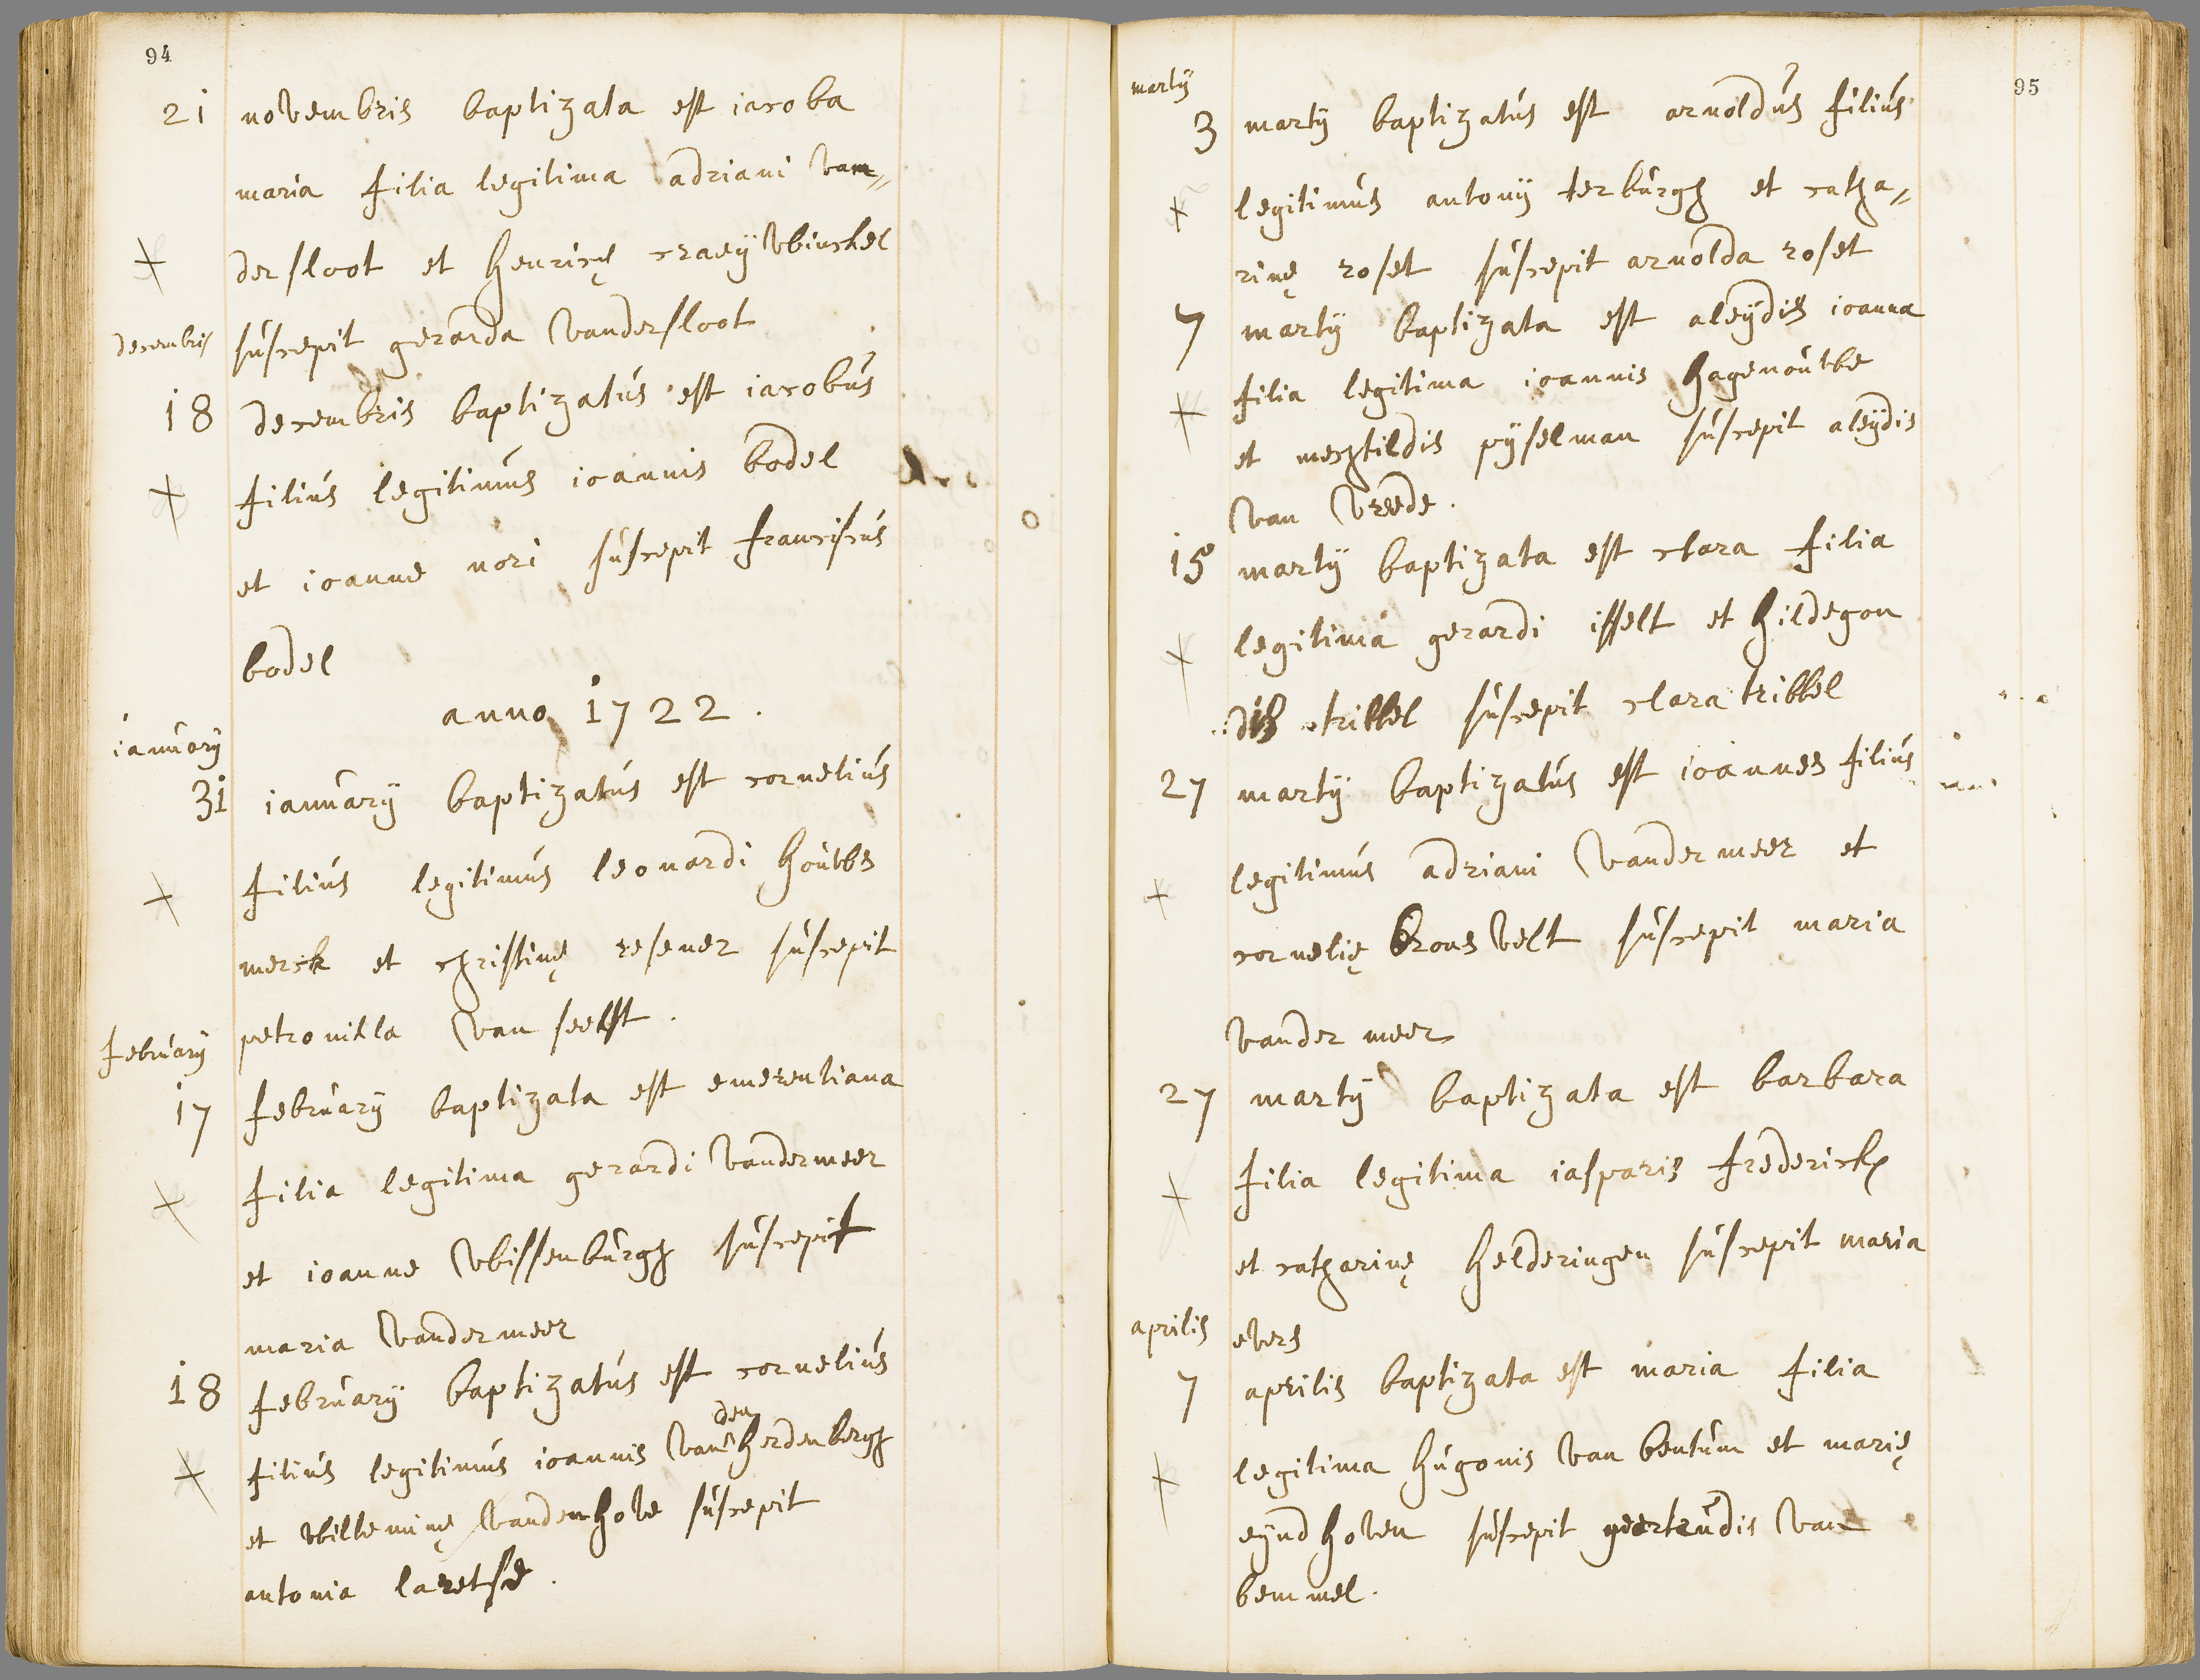 94
21 novembris baptizata est iacoba
maria filia legitima adriani van„
der sloot et henricę craeÿ winckel
decembris suscepit gerarda vandersloot
18 decembris baptizatús est iacobús
filiús legitimús ioannis bodel
et ioanne nori súscepit franciscús
bodel
anno 1722.
ianúarÿ
31 ianúarÿ baptizatús est corneliús
filiús legitimús leonardi hoúwe
merck et christinę resener súscepit
februarÿ petronilla van seelst.
17 februarÿ baptizata est emerentiana
filia legitima gerardi vandermeer
et ioanne wissenbúrgh súscepit
maria vandermeer
18 februarÿ baptizatús est corneliús
filiús legitimús ioannis van den herdenbergh
et willeminę vandenhove súscepit
antonia laretse.
martÿ 95
3 martÿ baptizatús est arnoldús filiús
legitimús antonÿ terbúrgh et catha„
rinę roset súscepit arnolda roset
7 martÿ baptizata est aleÿdis ioanna
filia legitima ioannis hagenoúwe
et mechtildis pÿselman súscepit aleÿdis
van vreede.
15 martÿ baptizata est clara filia
legitima gerardi isselt et hildegon
dis tribbel súscepit clara tribbel
27 martÿ baptizatús est ioannes filiús
legitimús adriani vander meer et
cornelię brons velt súscepit maria
vander meer
27 martÿ baptizata est barbara
filia legitima iasparis fredericks
et catharinę helderingen súscepit maria
aprilis evers
7 aprilis baptizata est maria filia
legitima húgonis van bentúm et marię
eÿndhoven súscepit geertrúdis van
bemmel.